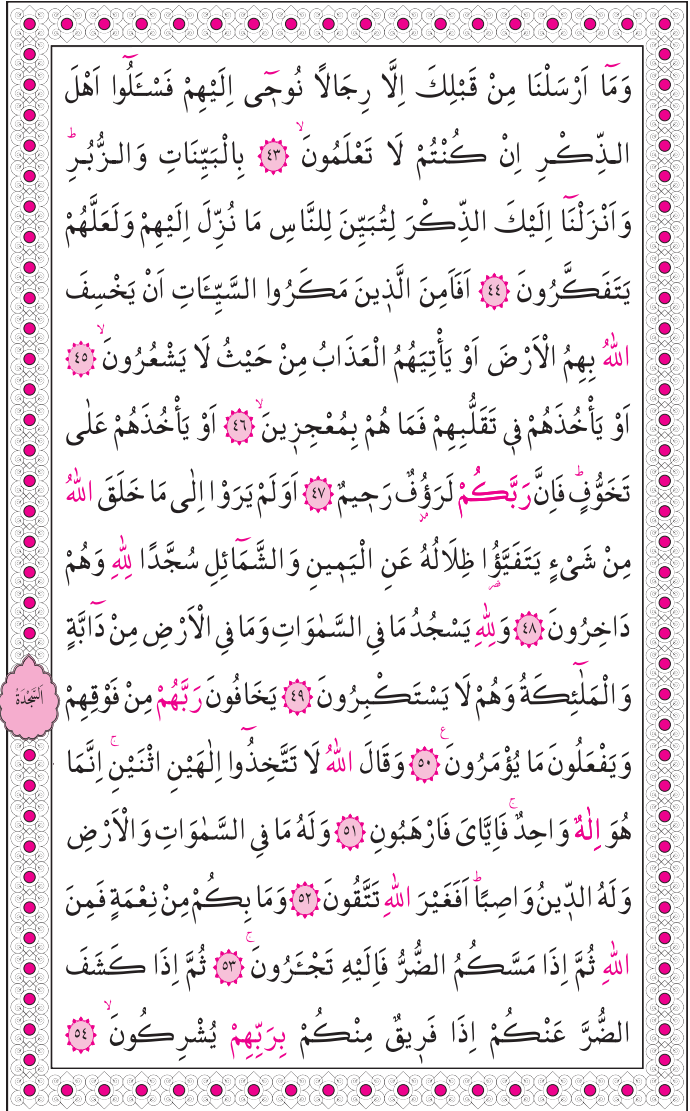 وَمَٓا اَرْسَلْنَا مِنْ قَبْلِكَ اِلَّا رِجَالًا نُوح۪ٓي اِلَيْهِمْ فَسْـَٔلُٓوا اَهْلَ
الذِّكْرِ اِنْ كُنْتُمْ لَا تَعْلَمُونَۙ ﴿٤٣﴾ بِالْبَيِّنَاتِ وَالزُّبُرِۜ
وَاَنْزَلْنَٓا اِلَيْكَ الذِّكْرَ لِتُبَيِّنَ لِلنَّاسِ مَا نُزِّلَ اِلَيْهِمْ وَلَعَلَّهُمْ
يَتَفَكَّرُونَ ﴿٤٤﴾ اَفَاَمِنَ الَّذ۪ينَ مَكَرُوا السَّيِّـَٔاتِ اَنْ يَخْسِفَ
اللّٰهُ بِهِمُ الْاَرْضَ اَوْ يَأْتِيَهُمُ الْعَذَابُ مِنْ حَيْثُ لَا يَشْعُرُونَۙ ﴿٤٥﴾
اَوْ يَأْخُذَهُمْ ف۪ي تَقَلُّبِهِمْ فَمَا هُمْ بِمُعْجِز۪ينَۙ ﴿٤٦﴾ اَوْ يَأْخُذَهُمْ عَلٰى
تَخَوُّفٍۜ فَاِنَّ رَبَّكُمْ لَرَؤُ۫فٌ رَح۪يمٌ ﴿٤٧﴾ اَوَلَمْ يَرَوْا اِلٰى مَا خَلَقَ اللّٰهُ
مِنْ شَيْءٍ يَتَفَيَّؤُ۬ا ظِلَالُهُ عَنِ الْيَم۪ينِ وَالشَّمَٓائِلِ سُجَّدًا لِلّٰهِ وَهُمْ
دَاخِرُونَ ﴿٤٨﴾ وَلِلّٰهِ يَسْجُدُ مَا فِي السَّمٰوَاتِ وَمَا فِي الْاَرْضِ مِنْ دَٓابَّةٍ
وَالْمَلٰٓئِكَةُ وَهُمْ لَا يَسْتَكْبِرُونَ ﴿٤٩﴾ يَخَافُونَ رَبَّهُمْ مِنْ فَوْقِهِمْ
اَلسَّجْدَةُ
وَيَفْعَلُونَ مَا يُؤْمَرُونَ ﴿٥٠﴾ وَقَالَ اللّٰهُ لَا تَتَّخِذُٓوا اِلٰهَيْنِ اثْنَيْنِۚ اِنَّمَا
هُوَ اِلٰهٌ وَاحِدٌۚ فَاِيَّايَ فَارْهَبُونِ ﴿٥١﴾ وَلَهُ مَا فِي السَّمٰوَاتِ وَالْاَرْضِ
وَلَهُ الدّ۪ينُ وَاصِبًاۜ اَفَغَيْرَ اللّٰهِ تَتَّقُونَ ﴿٥٢﴾ وَمَا بِكُمْ مِنْ نِعْمَةٍ فَمِنَ
اللّٰهِ ثُمَّ اِذَا مَسَّكُمُ الضُّرُّ فَاِلَيْهِ تَجْـَٔرُونَۚ ﴿٥٣﴾ ثُمَّ اِذَا كَشَفَ
الضُّرَّ عَنْكُمْ اِذَا فَر۪يقٌ مِنْكُمْ بِرَبِّهِمْ يُشْرِكُونَۙ ﴿٥٤﴾